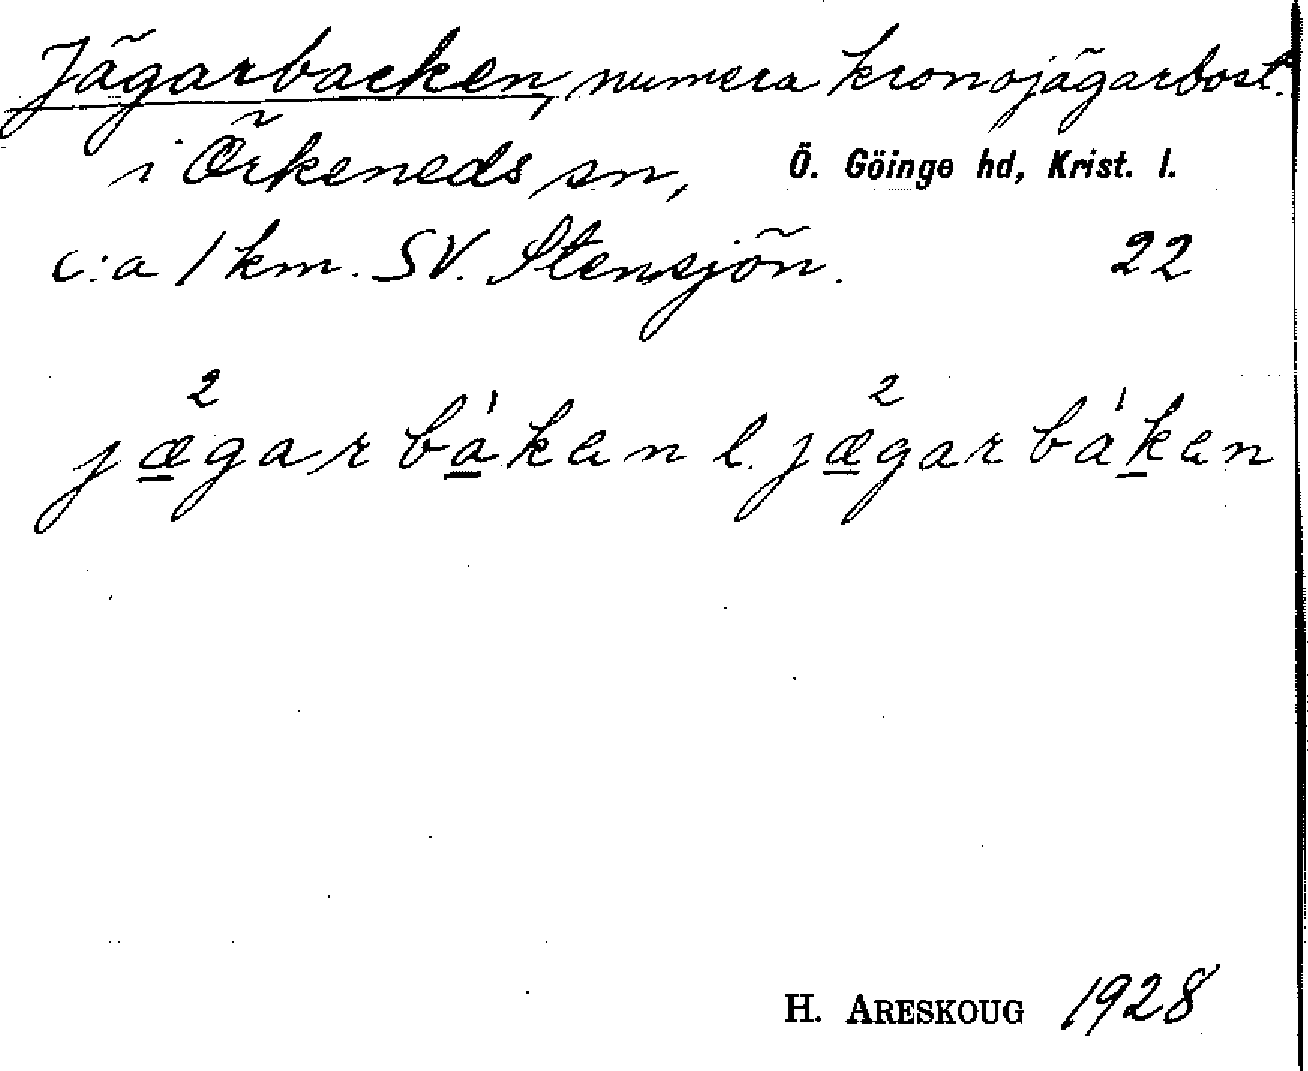 Jägarbacken, numera kronojägarbost.
i Örkeneds sn, Ö. Göinge hd, Krist. l.
c:a 1 km. SV. Stensjön. 22
jæ̲²garba̲¹ken l. jæ̲²garba¹k̲en
H. ARESKOUG 1928